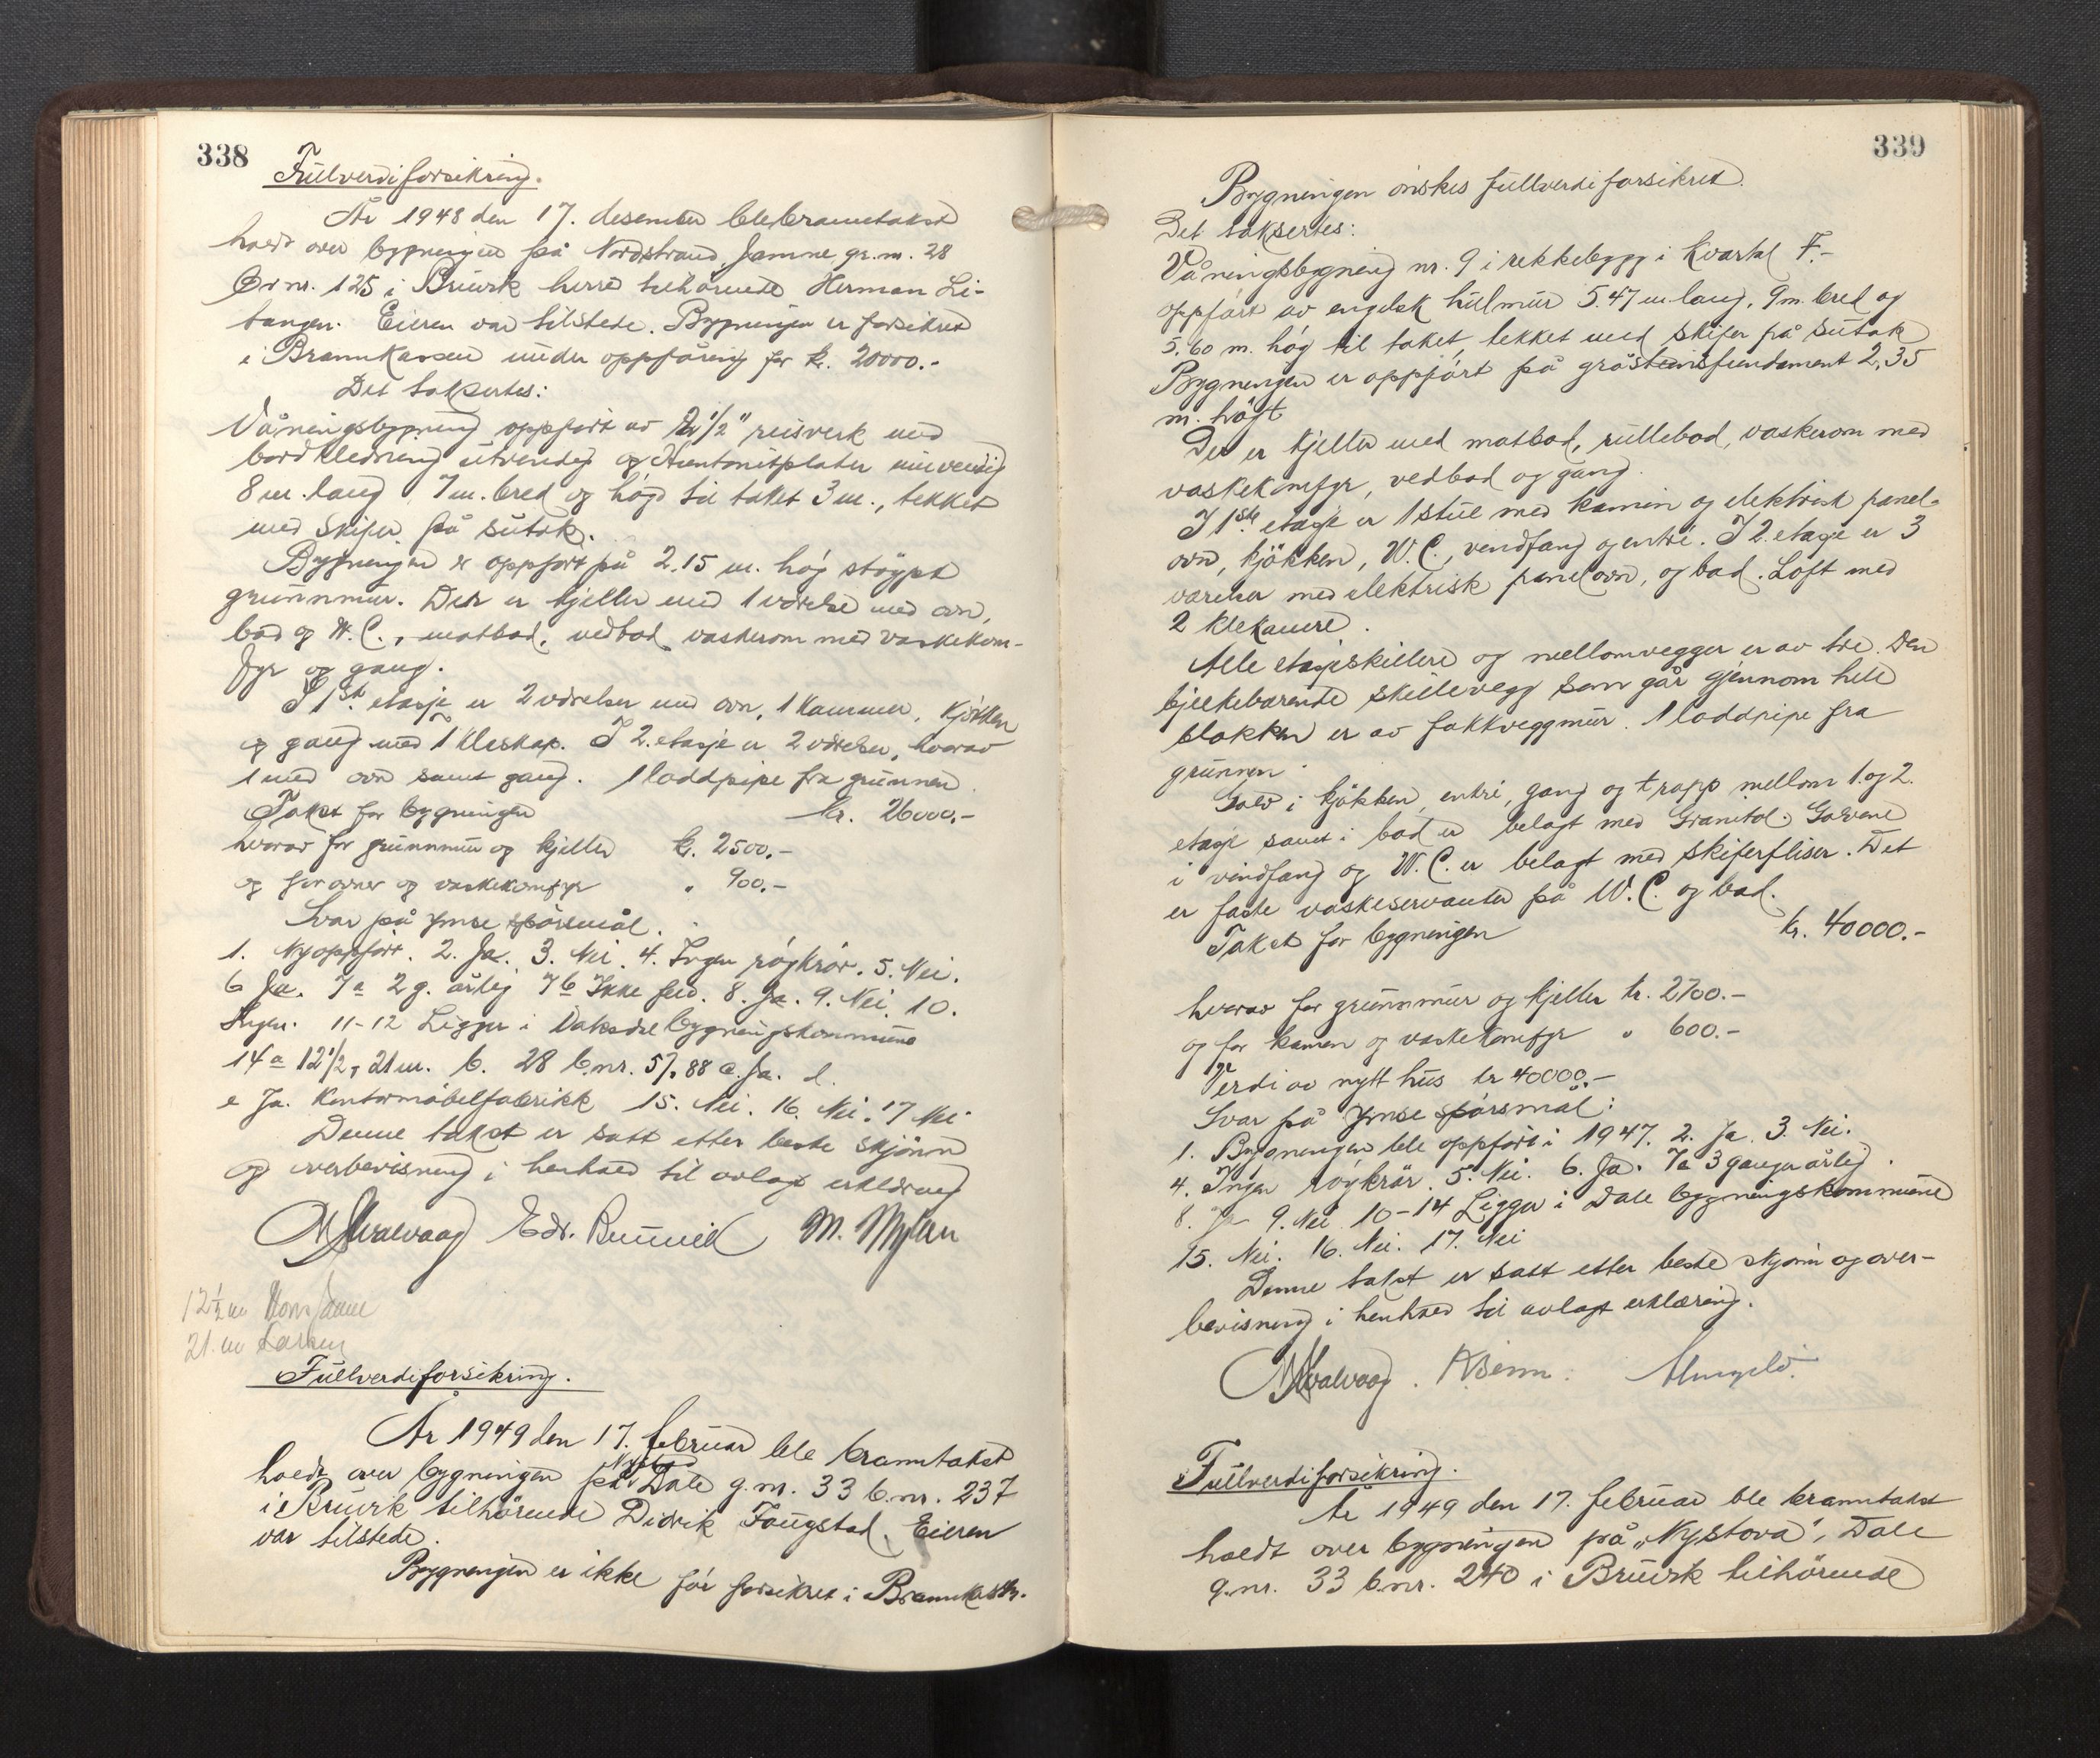 338
Fullverdiforsikring.
År 1948 den 17. desember ble branntakst
holdt over bygningen på Nordstrand, Jamne gr.nr. 28
Br nr. 125 i Bruvik herred tilhörende Herman Li-
tangen. Eieren var tilstede. Bygningen er forsikret
i Brannkassen under oppföring for kr. 20000.-
Det taksertes:
Våningsbygning oppfört av 2 1/2" reisverk med
bordkledning utvendig og Huntonitplater innvendig
8 m. lang 7 m. bred og högd til taket 3 m., tekket
med skifer på sutak.
Bygningen er oppfört på 2.15 m. hög stöypt
grunnmur. Der er kjeller med 1 værelse med ovn,
bad og W.C., matbod, vedbod vaskerom med vaskekom-
fyr og gang.
I 1ste etasje er 2 værelser med ovn, 1 kammer, kjökken
og gang med 1 kleskap. I 2. etasje er 2 værelser, hvorav
1 med ovn samt gang. 1 loddpipe fra grunnen.
Takst for bygningen kr. 26000.-
hvorav for grunnmur og kjeller kr. 2500.-
og for ovner og vaskekomfyr " 900.-
Svar på ymse spörsmål.
1. Nyoppfört. 2. Ja. 3. Nei. 4. Ingen röykrör. 5. Nei.
6 Ja. 7a 2 g. årlig 7b Ikke feid. 8. Ja. 9. Nei. 10.
Ingen. 11-12 Ligger i Vaksdal bygningskommune
14a 12 1/2, 21 m. b. 28 b.nr. 57, 88 c. Ja. d.
e Ja. Kontormöbelfabrikk 15. Nei. 16. Nei. 17 Nei
Denne takst er satt etter beste skjönn
og overbevisning i henhold til avlagt erklæring
M Kvalvaag M.
12 1/2 m
21. m
Fullverdiforsikring.
År 1949 den 17. februar ble branntakst
holdt over bygningen på Dale g.nr. 33 b.nr. 237
i Bruvik tilhörende Didrik Fougstad. Eieren
var tilstede.
Bygningen er ikke för forsikret i Brannkassen.
339
Bygningen önskes fullverdiforsikret.
Det taksertes:
Våningsbygning nr. 9 i rekkebygg i kvartal F.-
oppfört av engelsk hulmur 5.47 m lang, 9 m. bred og
5.60 m. hög til taket, tekket med skifer på sutak
Bygningen er oppfört på gråsteinsfundament 2,35
m. högt
Der er kjeller med matbod, rullebod, vaskerom med
vaskekomfyr, vedbod og gang.
I 1ste etasje er 1 stue med kamin og elektrisk panel-
ovn, kjökken, W.C., vendfang og entré. I 2. etasje er 3
værelser med elektrisk panelovn, og bad. Loft med
2 klekamre.
Alle etasjeskillere og mellomvegger er av tre. Den
bjelkebærende skillevegg som går gjennom hele
blokken er av fakkveggmur. 1 loddpipe fra
grunnen.
Golv i kjökken, entré, gang og trapp mellom 1. og 2.
etasje samt i bad er belagt med Granitol. Golvene
i vindfang og W.C. er belagt med skiferfliser. Det
er faste vaskeservanter på W.C. og bad.
Takst for bygningen kr. 40000.-
hvorav for grunnmur og kjeller kr. 2700.-
og for kamin og vaskekomfyr " 600.-
Verdi av nytt hus kr 40000.-
Svar på ymse spörsmål:
1. Bygningen ble oppfört i 1947. 2. Ja. 3. Nei.
4. Ingen röykrör. 5. Nei. 6. Ja. 7a 3 ganger årlig.
8. Ja 9. Nei 10-14 Ligger i Dale bygningskommune
15. Nei. 16. Nei. 17. Nei
Denne takst er satt etter beste skjönn og over-
bevisning i henhold til avlagt erklæring.
M Kvalvaag.
Fullverdiforsikring.
År 1949 den 17. februar ble branntakst
holdt over bygningen på "Nystova", Dale
g.nr. 33 b.nr. 240 i Bruvik tilhörende